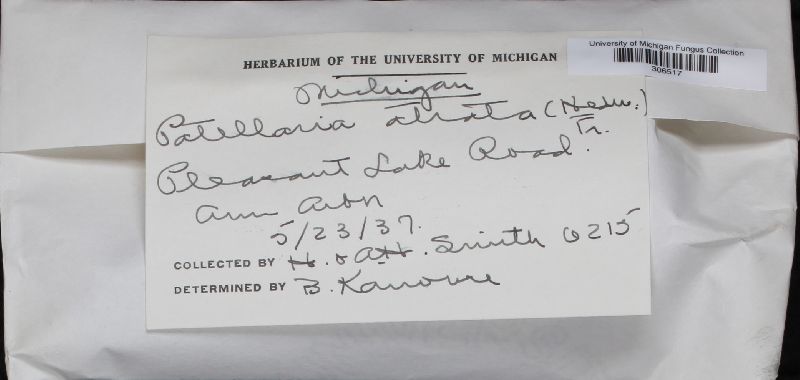 HERBARIUM OF THE UNIVERSITY OF MICHIGAN
University of Michigan Fungus Collection
306517
Michigan
Patellaria atrata (Hedw.)
Fr.
Pleasant Lake Road.
Ann Arbor
5/23/37.
COLLECTED BY H. & A.H. Smith 6215
DETERMINED BY B. Kanouse